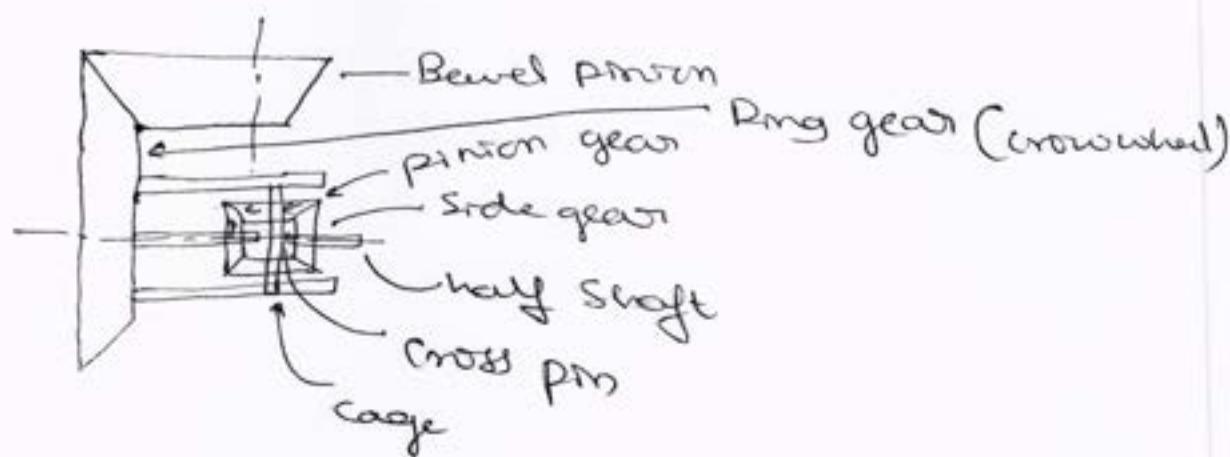 Bevel pinion
Ring gear (crownwheel)
pinion gear
Side gear
half shaft
cross pin
cage